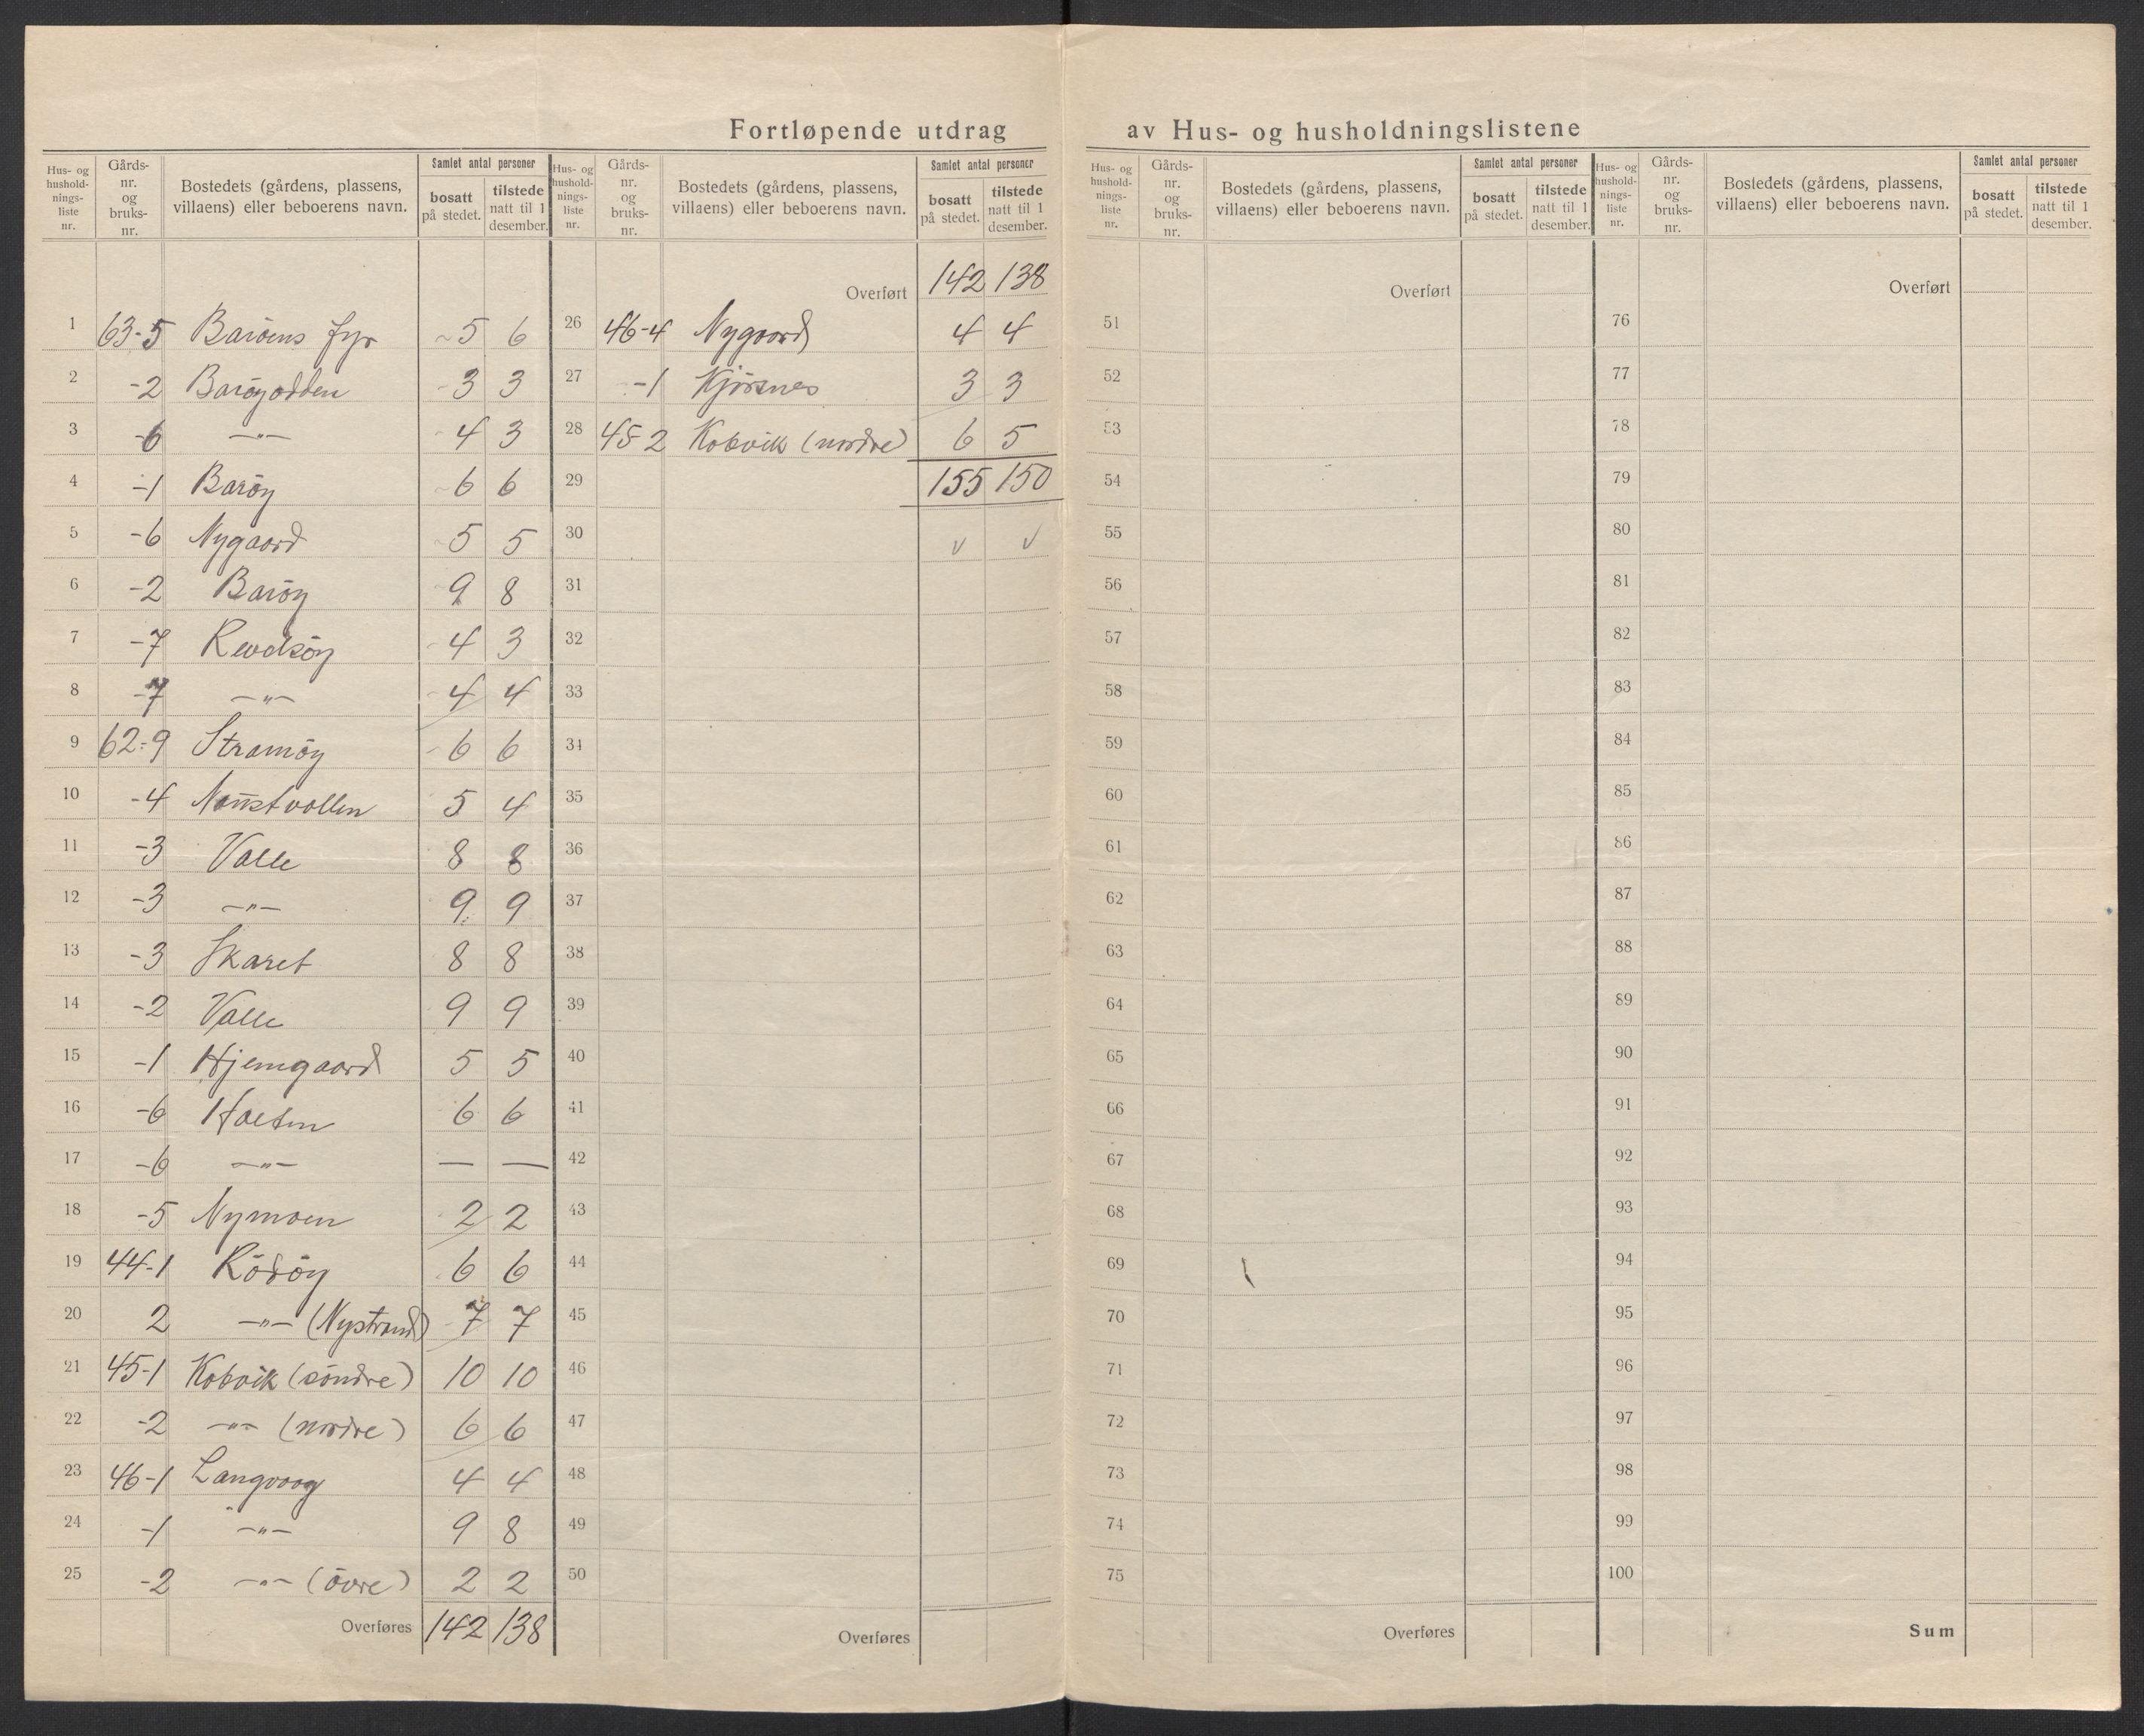 Fortløpende utdrag av Hus- og husholdningslistene
Hus- og hushold-nings-liste nr. Gårds-nr. og bruks-nr. Bostedets (gårdens, plassens, villaens) eller beboerens navn. Samlet antal personer bosatt på stedet. tilstede natt til 1 desember.
1 63-5 Barøens fyr 5 6
2 -2 Barøyodden 3 3
3 -6 -"- 4 3
4 -1 Barøy 6 6
5 -6 Nygaard 5 5
6 -2 Barøy 9 8
7 -7 Revelsöy 4 3
8 -7 -"- 4 4
9 62-9 Stramöy 6 6
10 -4 Naustvollen 5 4
11 -3 Valle 8 8
12 -3 -"- 9 9
13 -3 Skaret 8 8
14 -2 Valle 9 9
15 -1 Hjemgaard 5 5
16 -6 Holten 6 6
17 -6 -"- — —
18 -5 Nymoen 2 2
19 44-1 Rödöy 6 6
20 2 -"- (Nystrand) 7 7
21 45-1 Kobvik (söndre) 10 10
22 -2 -"- (nordre) 6 6
23 46-1 Langvaag 4 4
24 -1 -"- 9 8
25 -2 -"- (övre) 2 2
Overføres 142 138
Hus- og hushold-nings-liste nr. Gårds-nr. og bruks-nr. Bostedets (gårdens, plassens, villaens) eller beboerens navn. Samlet antal personer bosatt på stedet. tilstede natt til 1 desember.
Overført 142 138
26 46-4 Nygaard 4 4
27 -1 Kjörsnes 3 3
28 45-2 Kobvik (nordre) 6 5
29 155 150
30 v v
31
32
33
34
35
36
37
38
39
40
41
42
43
44
45
46
47
48
49
50
Overføres
Hus- og hushold-nings-liste nr. Gårds-nr. og bruks-nr. Bostedets (gårdens, plassens, villaens) eller beboerens navn. Samlet antal personer bosatt på stedet. tilstede natt til 1 desember.
Overført
51
52
53
54
55
56
57
58
59
60
61
62
63
64
65
66
67
68
69
70
71
72
73
74
75
Overføres
Hus- og hushold-nings-liste nr. Gårds-nr. og bruks-nr. Bostedets (gårdens, plassens, villaens) eller beboerens navn. Samlet antal personer bosatt på stedet. tilstede natt til 1 desember.
Overført
76
77
78
79
80
81
82
83
84
85
86
87
88
89
90
91
92
93
94
95
96
97
98
99
100
Sum